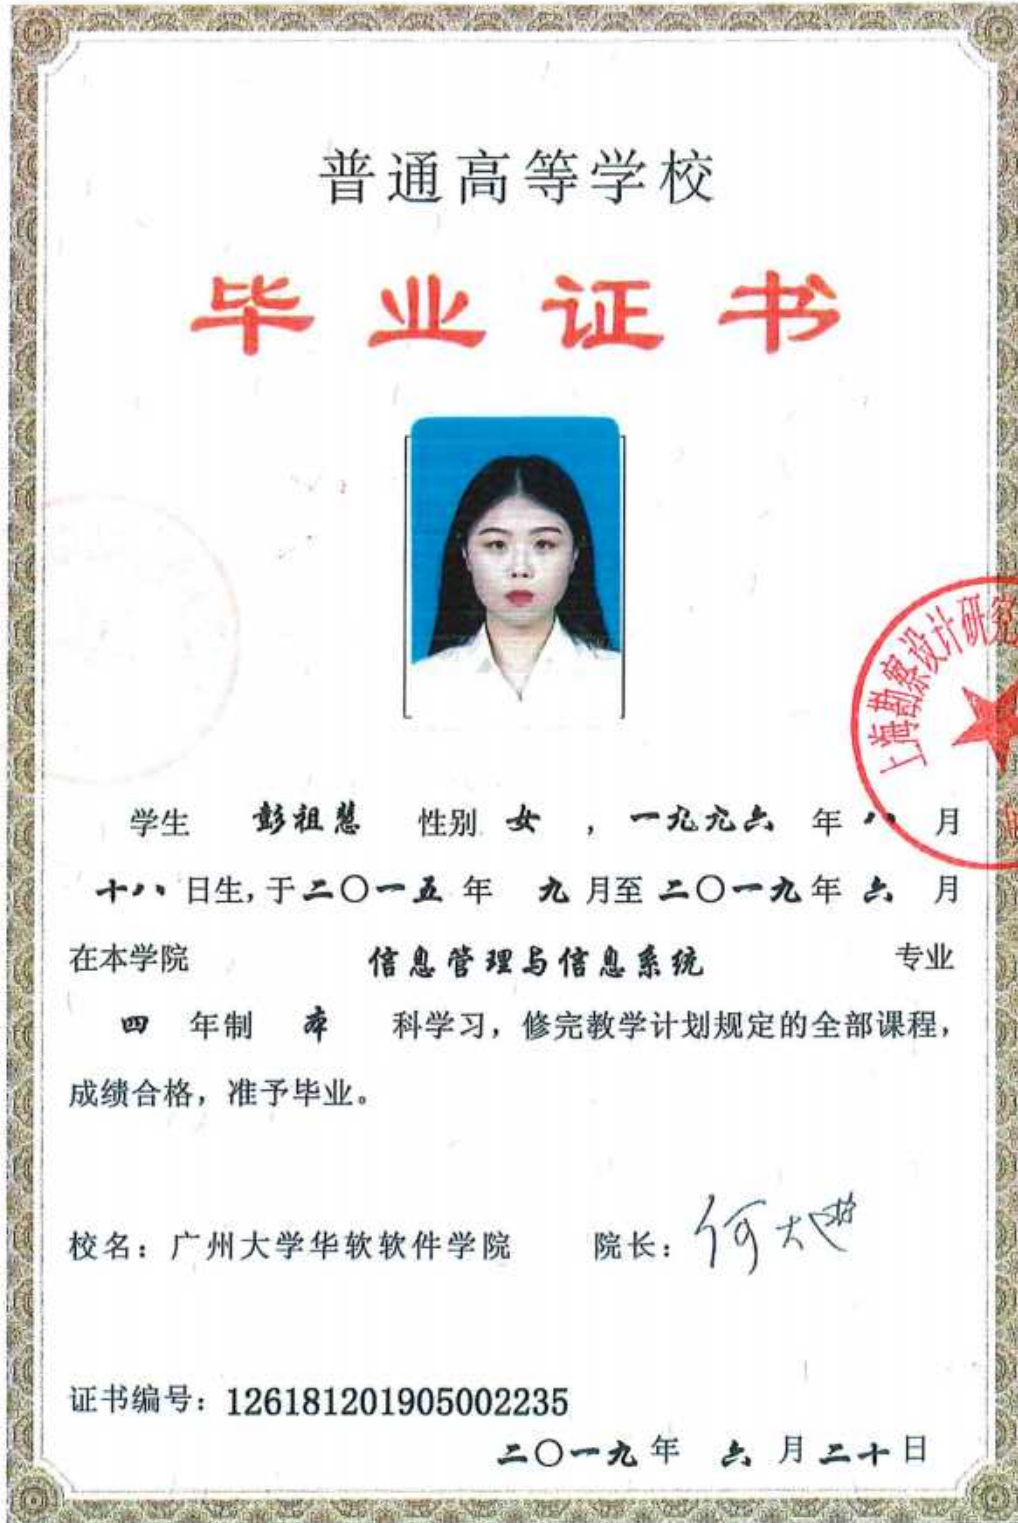 普通高等学校
毕业证书
上海勘察设计研究
学生 彭祖慧 性别 女 ，一九九六 年 八 月
十八 日生，于二〇一五 年 九 月至 二〇一九 年 六 月
在本学院 信息管理与信息系统 专业
四 年制 本 科学习，修完教学计划规定的全部课程，
成绩合格，准予毕业。
校名：广州大学华软软件学院 院长：
证书编号：126181201905002235
二〇一九 年 六 月二十日